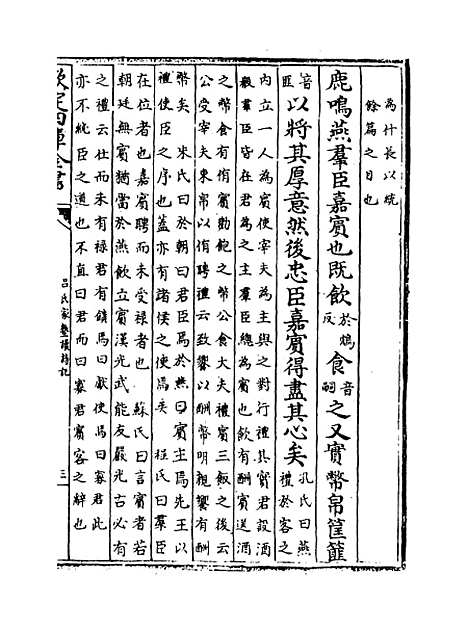 為什長以統
餘篇之目也
鹿鳴燕羣臣嘉賓也既飲於鴆反食音嗣之又實幣帛筐篚
音匪以將其厚意然後忠臣嘉賓得盡其心矣孔氏曰燕禮於客之
内立一人為賓使宰夫為主與之對行禮其實君設酒
殽羣臣皆在君為之主羣臣總為賓也飲有酬賓送酒
之幣食有侑賓勸飽之幣公食大夫禮賓三飯之後云
公受宰夫束帛以侑聘禮云致饗以酬幣明親饗有酬
幣矣 朱氏曰於朝曰君臣焉於燕曰賓主焉先王以
禮使臣之序也蓋亦有諸侯之使焉矣 程氏曰羣臣
在位者也嘉賓聘而未受禄者也 蘇氏曰言賓者若
朝廷無賓猶當於燕飲立賓漢光武能友嚴光古必有
之禮云仕而未有禄君有饋焉曰獻使焉曰寡君此
亦不純臣之道也不直曰君而曰寡君賓客之辭也
欽定四庫全書
吕氏家塾讀詩記
三